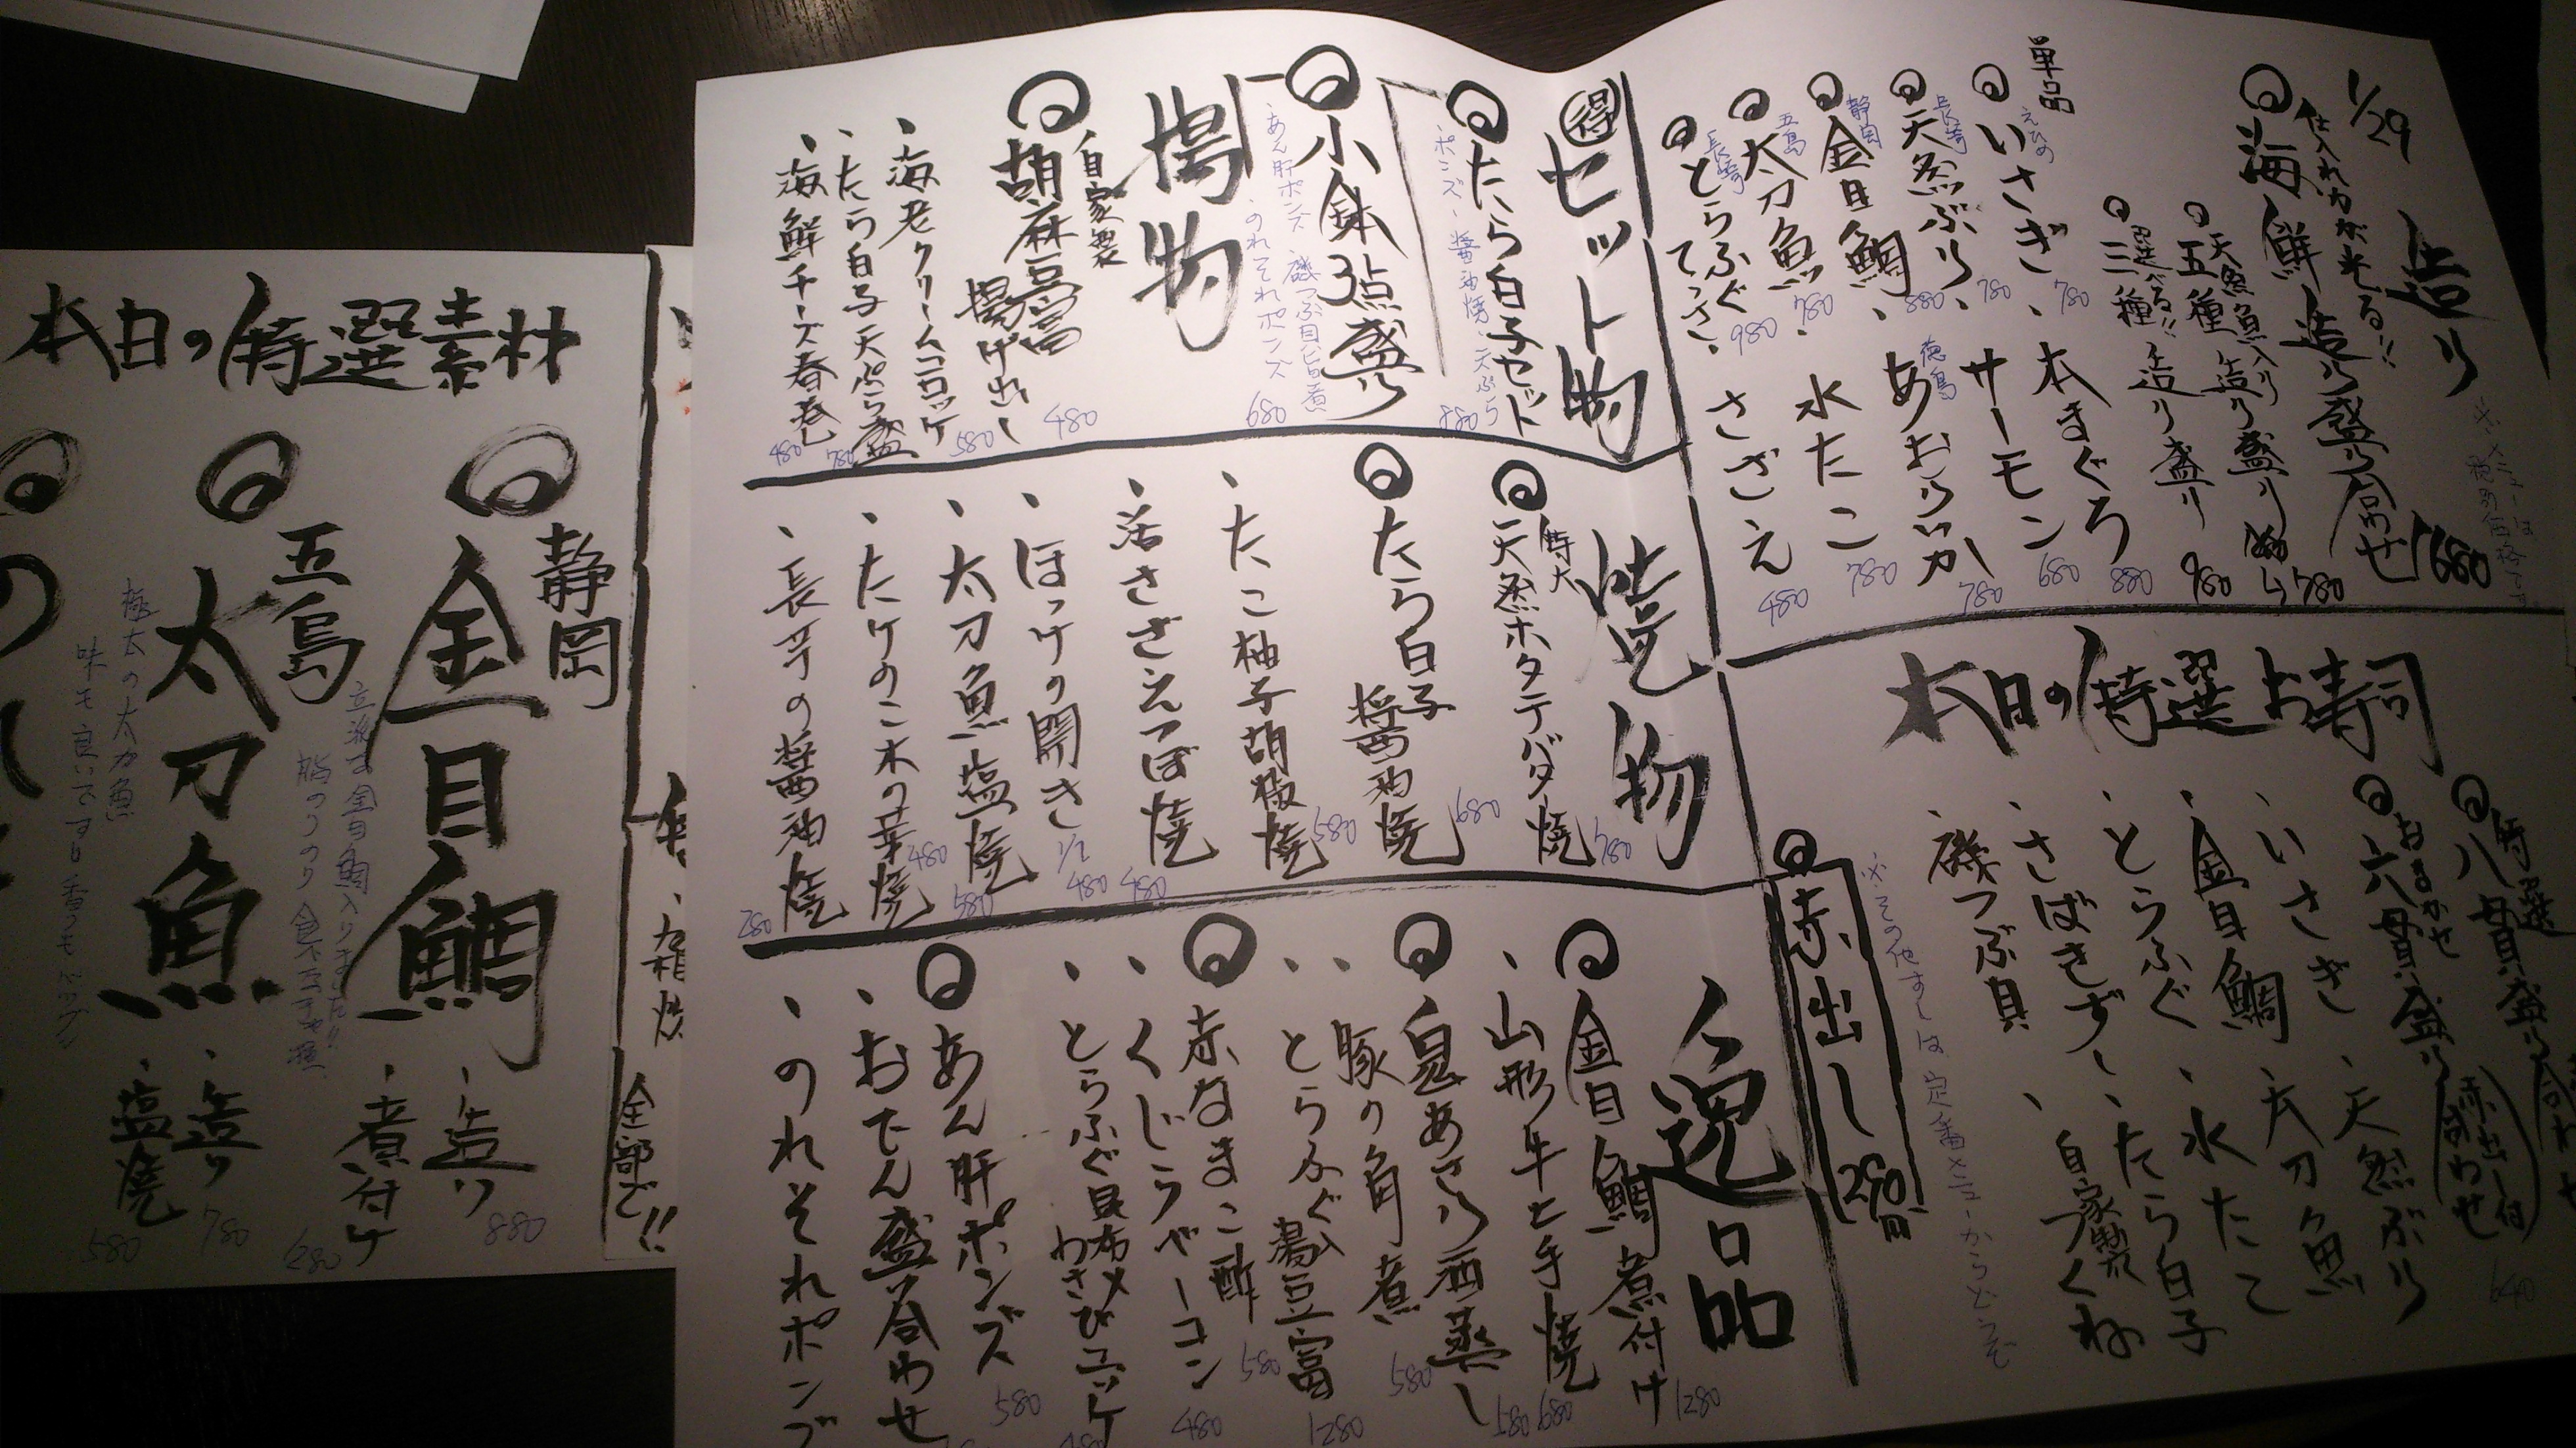 1/29
造り
仕入れ力が光る!!
海鮮造り盛り合わせ 1680
天然魚入り
五種造り盛り 980
選べる!!
三種造り盛り 880
単品
えひめ
いさぎ 780
本まぐろ
サーモン 680
長崎
天然ぶり 880
徳島
あおりいか 780
静岡
金目鯛
水たこ 780
五島
太刀魚 780
さざえ 480
長崎
とらふぐてっさ 980
本日の特選お寿司
特選
八貫盛り合わせ
おまかせ
六貫盛り
(赤出し付 合わせ)
・いさぎ
・天然ぶり
・金目鯛
・太刀魚
・とらふぐ
・水たこ
・さばきずし
・たら白子
・磯つぶ貝
・自家製つくね
※その他すしは定番メニューからどうぞ
赤出し 290円
得 セット物
たら白子セット 880
ポンズ・醤油焼・天ぷら
小鉢3点盛り 680
・あん肝ポンズ・磯つぶ貝旨煮
・のれそれポンズ
揚物
自家製
胡麻豆富揚げ出し 480
・海老クリームコロッケ 580
・たら白子天ぷら盛 780
・海鮮チーズ春巻 480
焼物
特大
天然ホタテバター焼 780
たら白子醤油焼 680
・たこ柚子胡椒焼 580
・活さざえつぼ焼 480
・ほっけの開き 1/2 480
・太刀魚塩焼 580
・たけのこ木の芽焼 480
・長芋の醤油焼 280
逸品
金目鯛煮付け 1280
・山形牛ヒ手焼 680
鬼あさり酒蒸し 580
・豚の角煮 580
・とらふぐ入湯豆富 1280
赤なまこ酢 580
・くじらベーコン 480
・とらふぐ昆布〆わさびユッケ
あん肝ポンズ 580
・おでん盛り合わせ
・のれそれポンズ
全部で!!
本日の特選素材
静岡
金目鯛
・造り 880
・煮付け
五島
太刀魚
極太の太刀魚
・造り 780
・塩焼 580